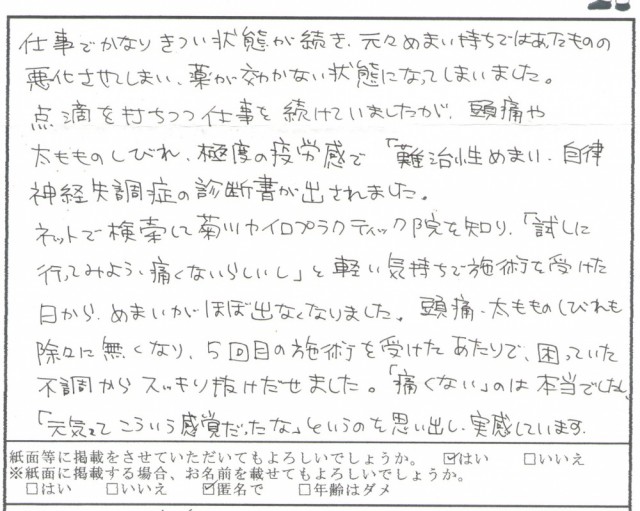 仕事でかなりきつい状態が続き、元々めまい持ちではあたものの
悪化させてしまい、薬が効かない状態になってしまいました。
点滴を打ちつつ仕事を続けていましたが、頭痛や
太もものしびれ、極度の疲労感で「難治性めまい、自律
神経失調症の診断書が出されました。
ネットで検索して菊川カイロプラクティック院を知り、「試しに
行ってみよう、痛くないらしいし」と軽い気持ちで施術を受けた
日から、めまいがほぼ出なくなりました。頭痛、太もものしびれも
除々に無くなり、5回目の施術を受けたあたりで、困っていた
不調からスッキリ抜けだせました。「痛くない」のは本当でした。
「元気ってこういう感覚だったな」というのを思い出し、実感しています。
紙面等に掲載をさせていただいてもよろしいでしょうか。 ☑はい □いいえ
※紙面に掲載する場合、お名前を載せてもよろしいでしょうか。
□はい □いいえ ☑匿名で □年齢はダメ